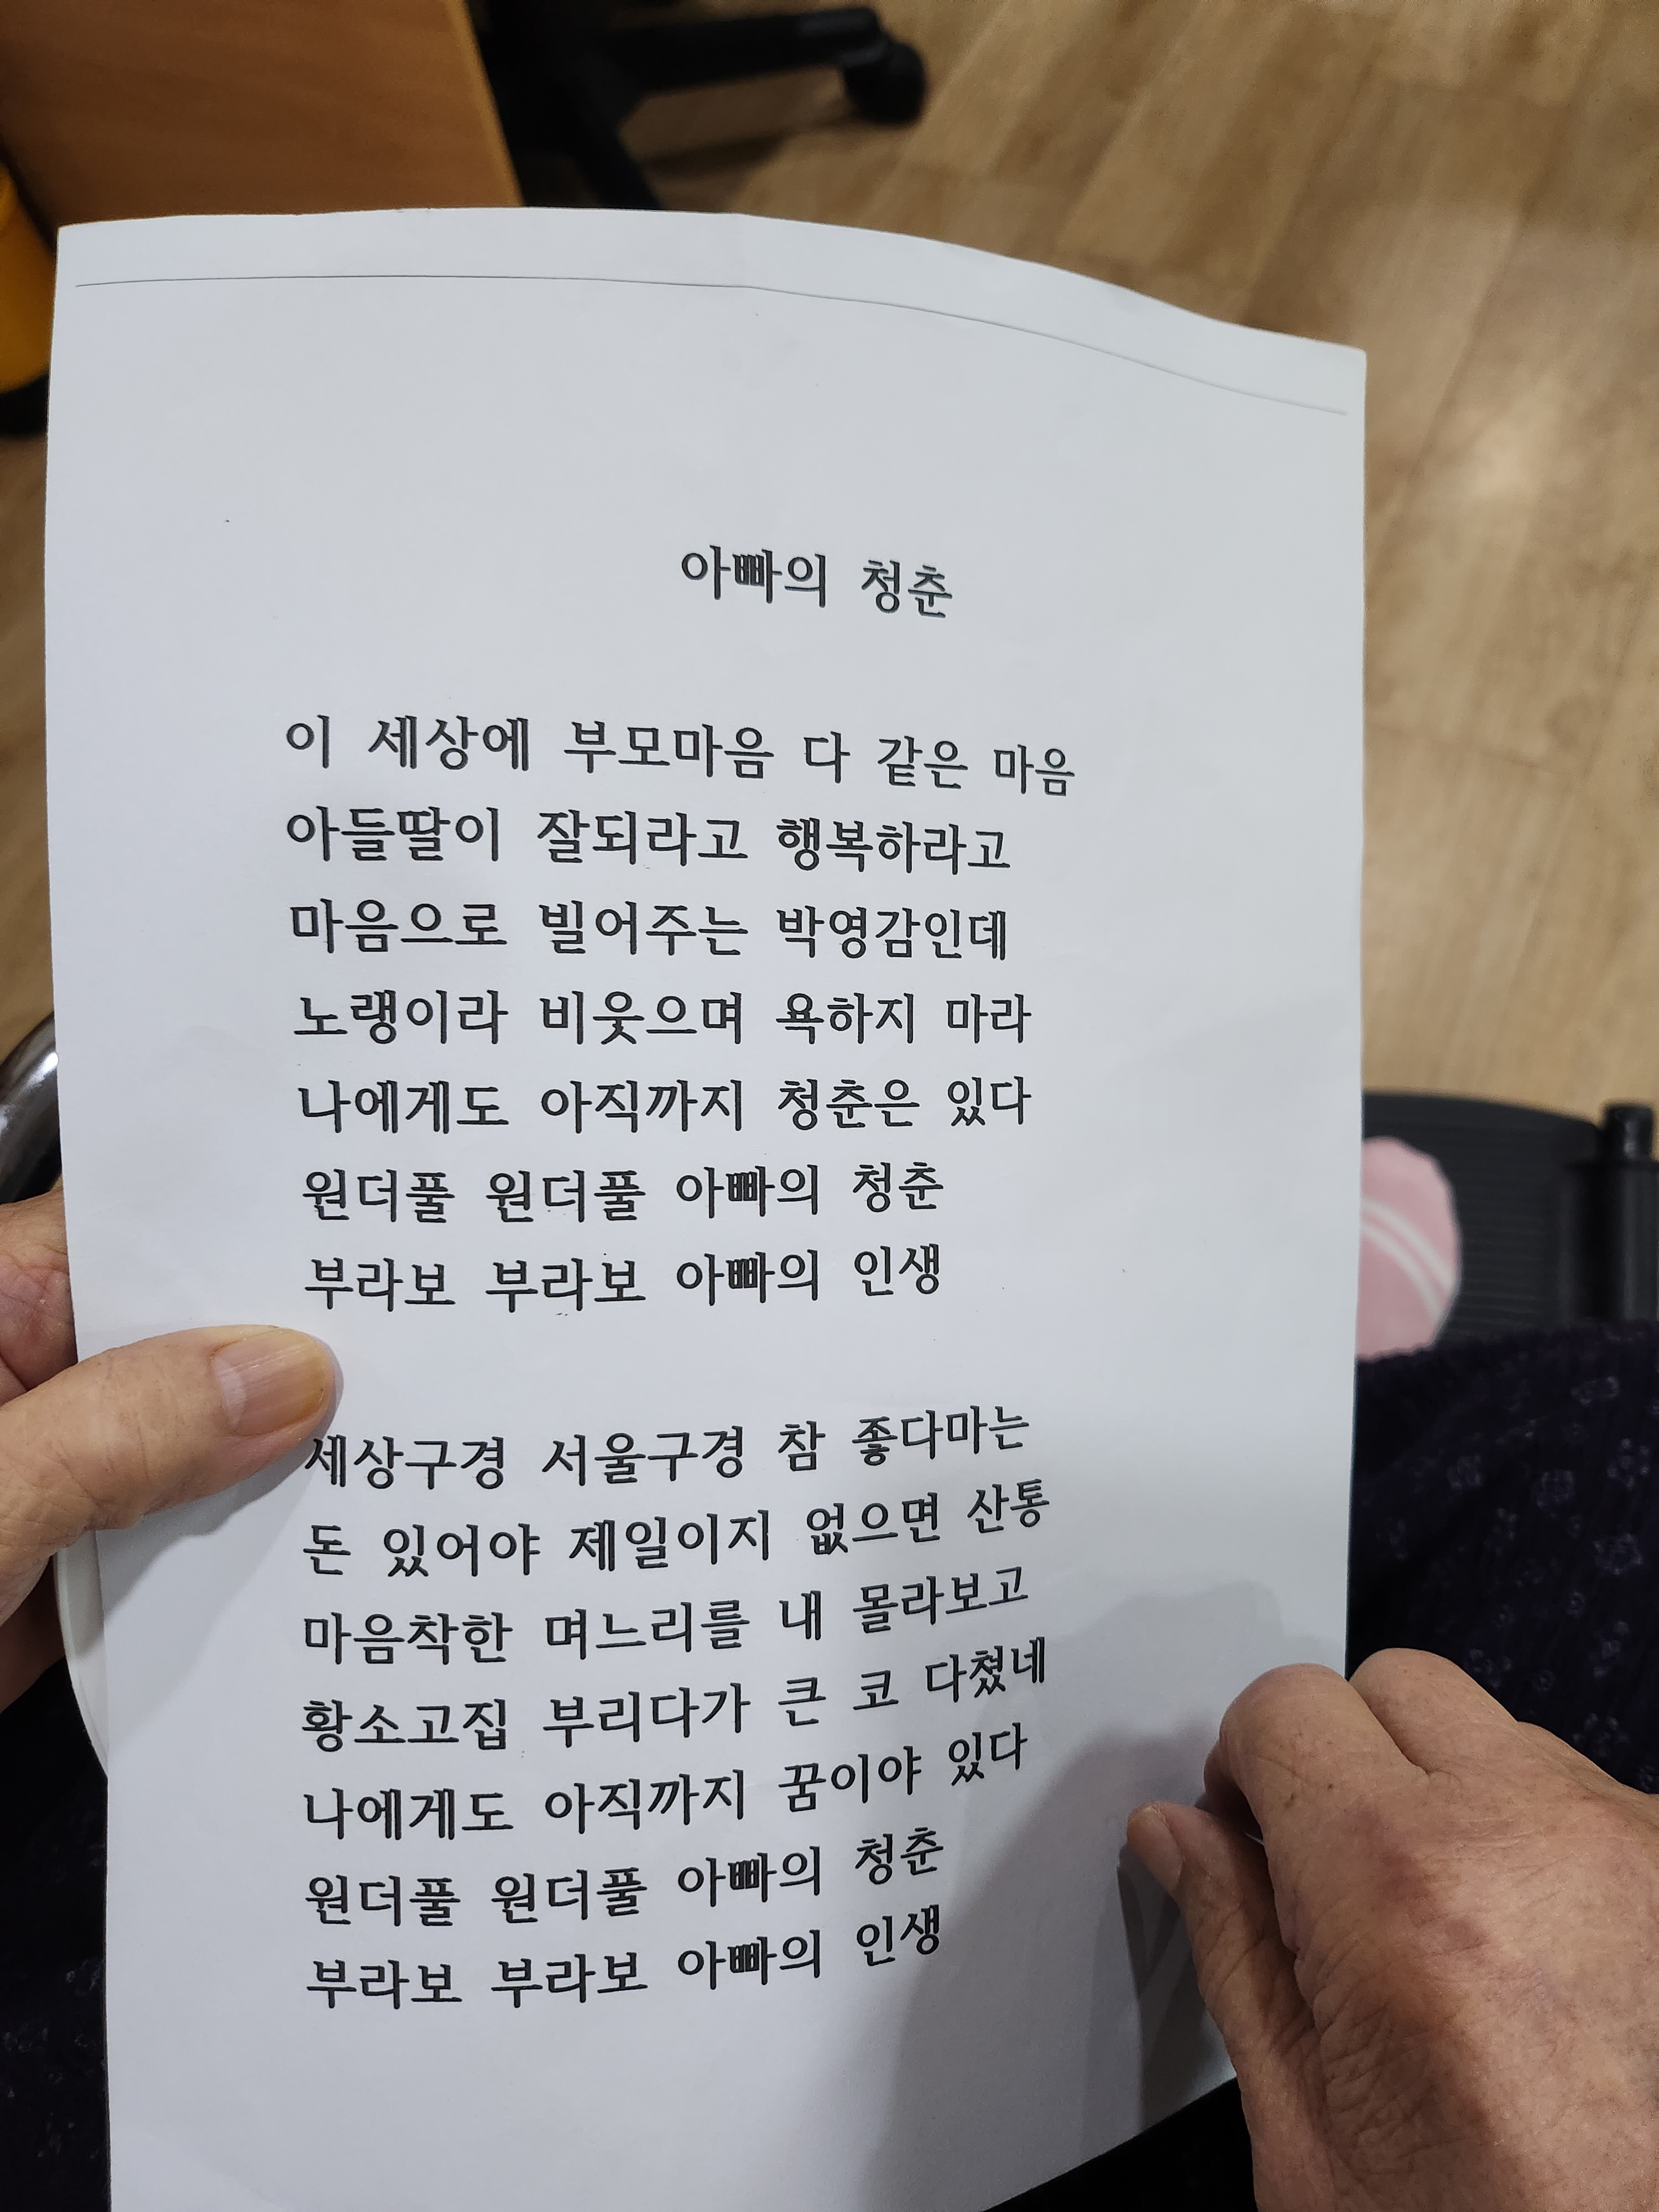 아빠의 청춘
이 세상에 부모마음 다 같은 마음
아들딸이 잘되라고 행복하라고
마음으로 빌어주는 박영감인데
노랭이라 비웃으며 욕하지 마라
나에게도 아직까지 청춘은 있다
원더풀 원더풀 아빠의 청춘
부라보 부라보 아빠의 인생
세상구경 서울구경 참 좋다마는
돈 있어야 제일이지 없으면 산통
마음착한 며느리를 내 몰라보고
황소고집 부리다가 큰 코 다쳤네
나에게도 아직까지 꿈이야 있다
원더풀 원더풀 아빠의 청춘
부라보 부라보 아빠의 인생